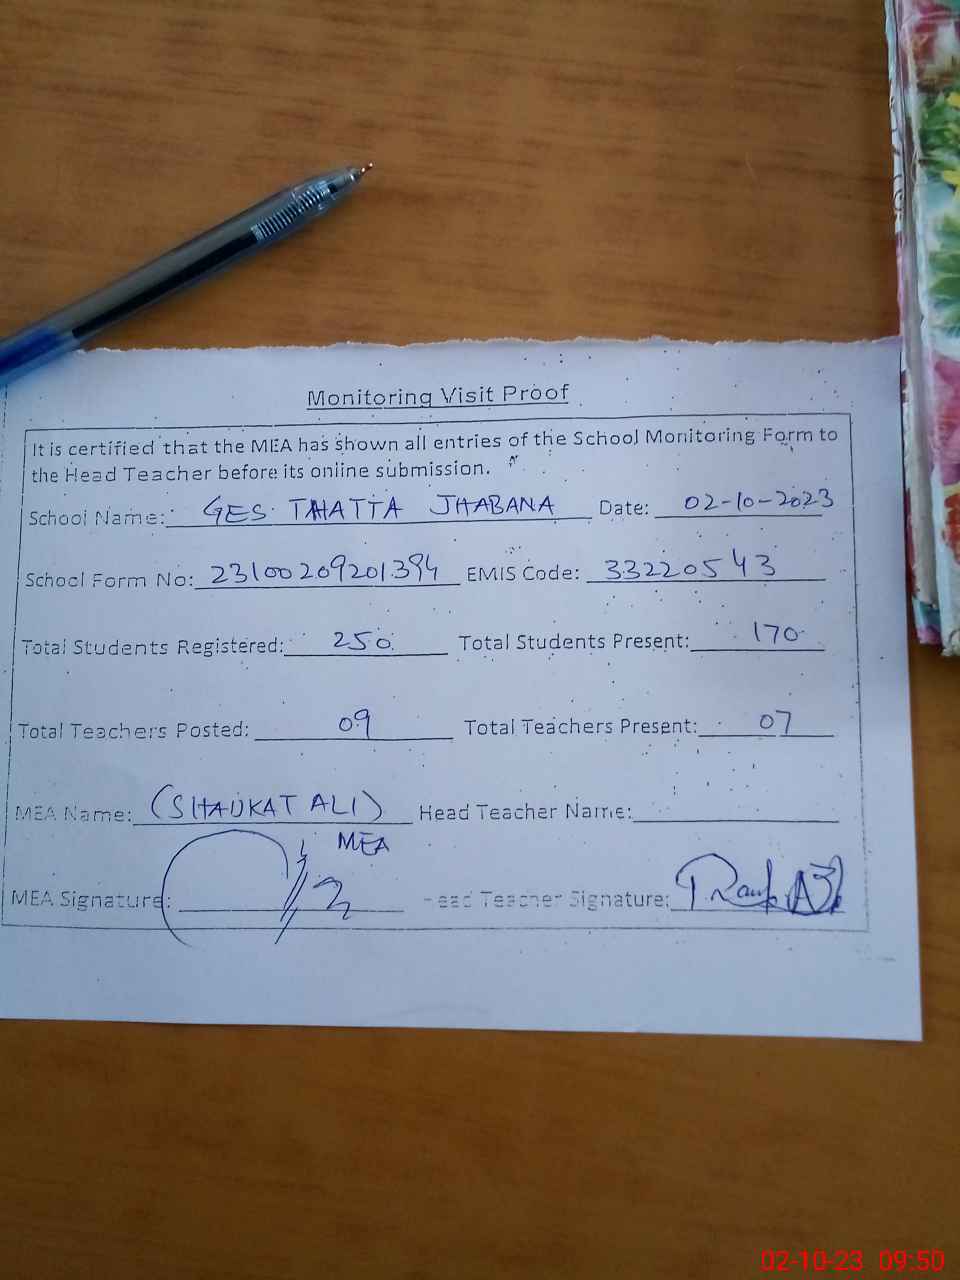 Monitoring Visit Proof
It is certified that the MEA has shown all entries of the School Monitoring Form to
the Head Teacher before its online submission.
School Name: GES. THATTA JHABANA Date: 02-10-2023
School Form No: 23100209201394 EMIS Code: 33220543
Total Students Registered: 250 Total Students Present: 170
Total Teachers Posted: 09 Total Teachers Present: 07
MEA Name: (SHAUKAT ALI) Head Teacher Name:
MEA
MEA Signature: Head Teacher Signature:
02-10-23 09:50